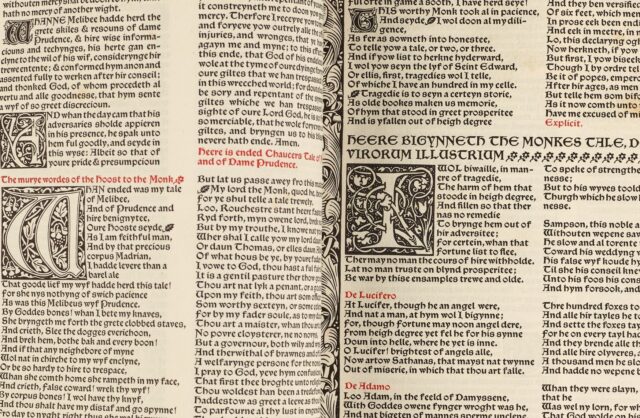 without mercy shall
that no mercy of another wight.
WHANNE Melibee hadde herd the
grete skiles & resouns of dame
Prudence, & hire wise informa-
ciouns and techynges, his herte gan en-
clyne to the wil of his wif, considerynge hir
trewe entente; & conformed hym anon and
assented fully to werken after hir conseil;
and thonked God, of whom procedeth al
vertu and alle goodnesse, that hym sente
a wyf of so greet discrecioun.
AND whan the day cam that his
adversaries sholde appieren
in his presence, he spak unto
hem ful goodly, and seyde in
this wyse: Albeit so that of
youre pride & presumpcioun
The murye wordes of the Hoost to the Monk
WHAN ended was my tale
of Melibee,
And of Prudence and
hire benignytee,
Oure hooste seyde
As I am feithful man,
And by that precious
corpus Madrian,
I hadde levere than a
barel ale
That goode lief my wyf hadde herd this tale!
For she nys nothyng of swich pacience
As was this Melibeus wyf Prudence.
By Goddes bones! whan I bete my knaves,
She bryngeth me forth the grete clobbed staves,
And crieth, Slee the dogges everichoon,
And brek hem, bothe bak and every boon!
And if that any neighebore of myne
Wol nat in chirche to my wyf enclyne,
Or be so hardy to hire to trespace,
Whan she comth home she rampeth in my face,
And crieth, false coward! wrek thy wyf!
By corpus bones! I wol have thy knyf,
And thou shalt have my distaf and go spynne!
it constreyneth me to doon yow
mercy. Therfore I receyve yow
and foryeve yow outrely alle the
and wronges, that ye
agayn me and myne; to this
this ende, that God of his
wole at the tyme of oure
oure giltes that we han trespassed
in this wrecched world; for doutelees
be sory and repentant of the
giltes whiche we han
sighte of oure Lord God, he is
so merciable, that he wole foryeven
giltes, and bryngen us to his
nevere hath ende. Amen.
Heere is ended Chaucers Tale of
and of Dame Prudence.
But lat us passe awey fro this
My lord the Monk, quod he,
For ye shul telle a tale trewely.
Loo, Rouchestre stant heer faste
Ryd forth, myn owene lord, brek
But by my trouthe, I knowe nat
Wher shal I calle yow my lord daun
Or daun Thomas, or elles daun
Of what hous be ye, by youre fader
I vowe to God, thou hast a ful
It is a gentil pasture ther thou
Thou art nat lyk a penant, or a
Upon my feith, thou art som
Som worthy sexteyn, or some
For by my fader soule, as to my
Thou art a maister, whan thou
No povre cloysterer, ne no
But a governour, both wily and
And therwithal of brawnes and
A welfaryng persone for the
I pray to God, yeve hym confusioun
That first thee broghte unto
Thou woldest han been a
Haddestow as greet a leeve as
To parfourne al thy lust in
Fulofte in game a sooth, I have herd seye!
THIS worthy Monk took al in pacience
And seyde, I wol doon al my dili-
gence,
As fer as souneth into honestee,
To telle yow a tale, or two, or three.
And if yow list to herkne hyderward,
I wol yow seyn the lyf of Seint Edward,
Or ellis, first, tragedies wol I telle,
Of whiche I have an hundred in my celle.
Tragedie is to seyn a certeyn storie,
As olde bookes maken us memorie,
Of hym that stood in greet prosperitee
And is yfallen out of heigh degree
And they ben versified
Of six feet, which men
In prose eek been endited
And eek in meetre, in
Lo, this declaryng
Now herkneth, if
But first, I yow biseeke
Though I by ordre telle
Be it of popes, emperours
After hir ages, as men
But telle hem som bifore
As it now comth unto
Have me excused of my
Explicit.
HEERE BIGYNNETH THE MONKES TALE, D
VIRORUM ILLUSTRIUM
I WOL biwaille, in man-
ere of tragedie,
The harm of hem that
stoode in heigh degree,
And fillen so that ther
nas no remedie
To brynge hem out of
hir adversitee;
For certein, whan that
fortune list to flee,
Ther may no man the cours of hire withholde,
Lat no man truste on blynd prosperitee;
Be war by thise ensamples trewe and olde.
De Lucifero
At Lucifer, though he an angel were,
And nat a man, at hym wol I bigynne;
For, though fortune may noon angel dere,
From heigh degree yet fel he for his synne
Doun into helle, where he yet is inne.
O Lucifer! brightest of angels alle,
Now artow Sathanas, that mayst nat twynne
Out of miserie, in which that thou art falle.
De Adamo
Loo Adam, in the feeld of Damyssene,
With Goddes owene fynger wroght was he,
To speke of strengthe
nesse;
But to his wyves toolde
Thurgh which he slow
nesse.
Sampson, this noble
Withouten wepene save
He slow and al torente
Toward his weddyng
His false wyf koude
Til she his conseil
Unto his foos his conseil
And hym forsook, and
Three hundred foxes
And alle hir tayles he
And sette the foxes
For he on every tayl
And they brende alle
And alle hir olyveres
A thousand men he slow
And hadde no wepene
Whan they were slayn,
that he
Was wel ny lorn, for